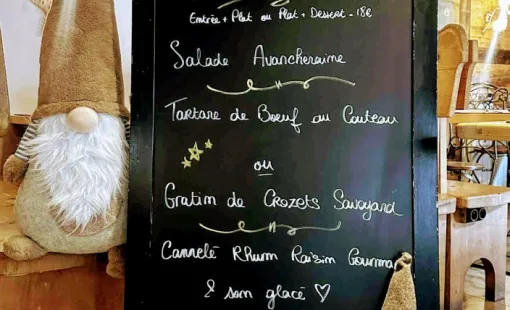 Entrée + Plat ou Plat + Dessert - 18€
Salade Avancheraine
Tartare de Boeuf au Couteau
ou
Gratin de Crozets Savoyard
Cannelé Rhum Raisin Gourma
& son glacé ♡